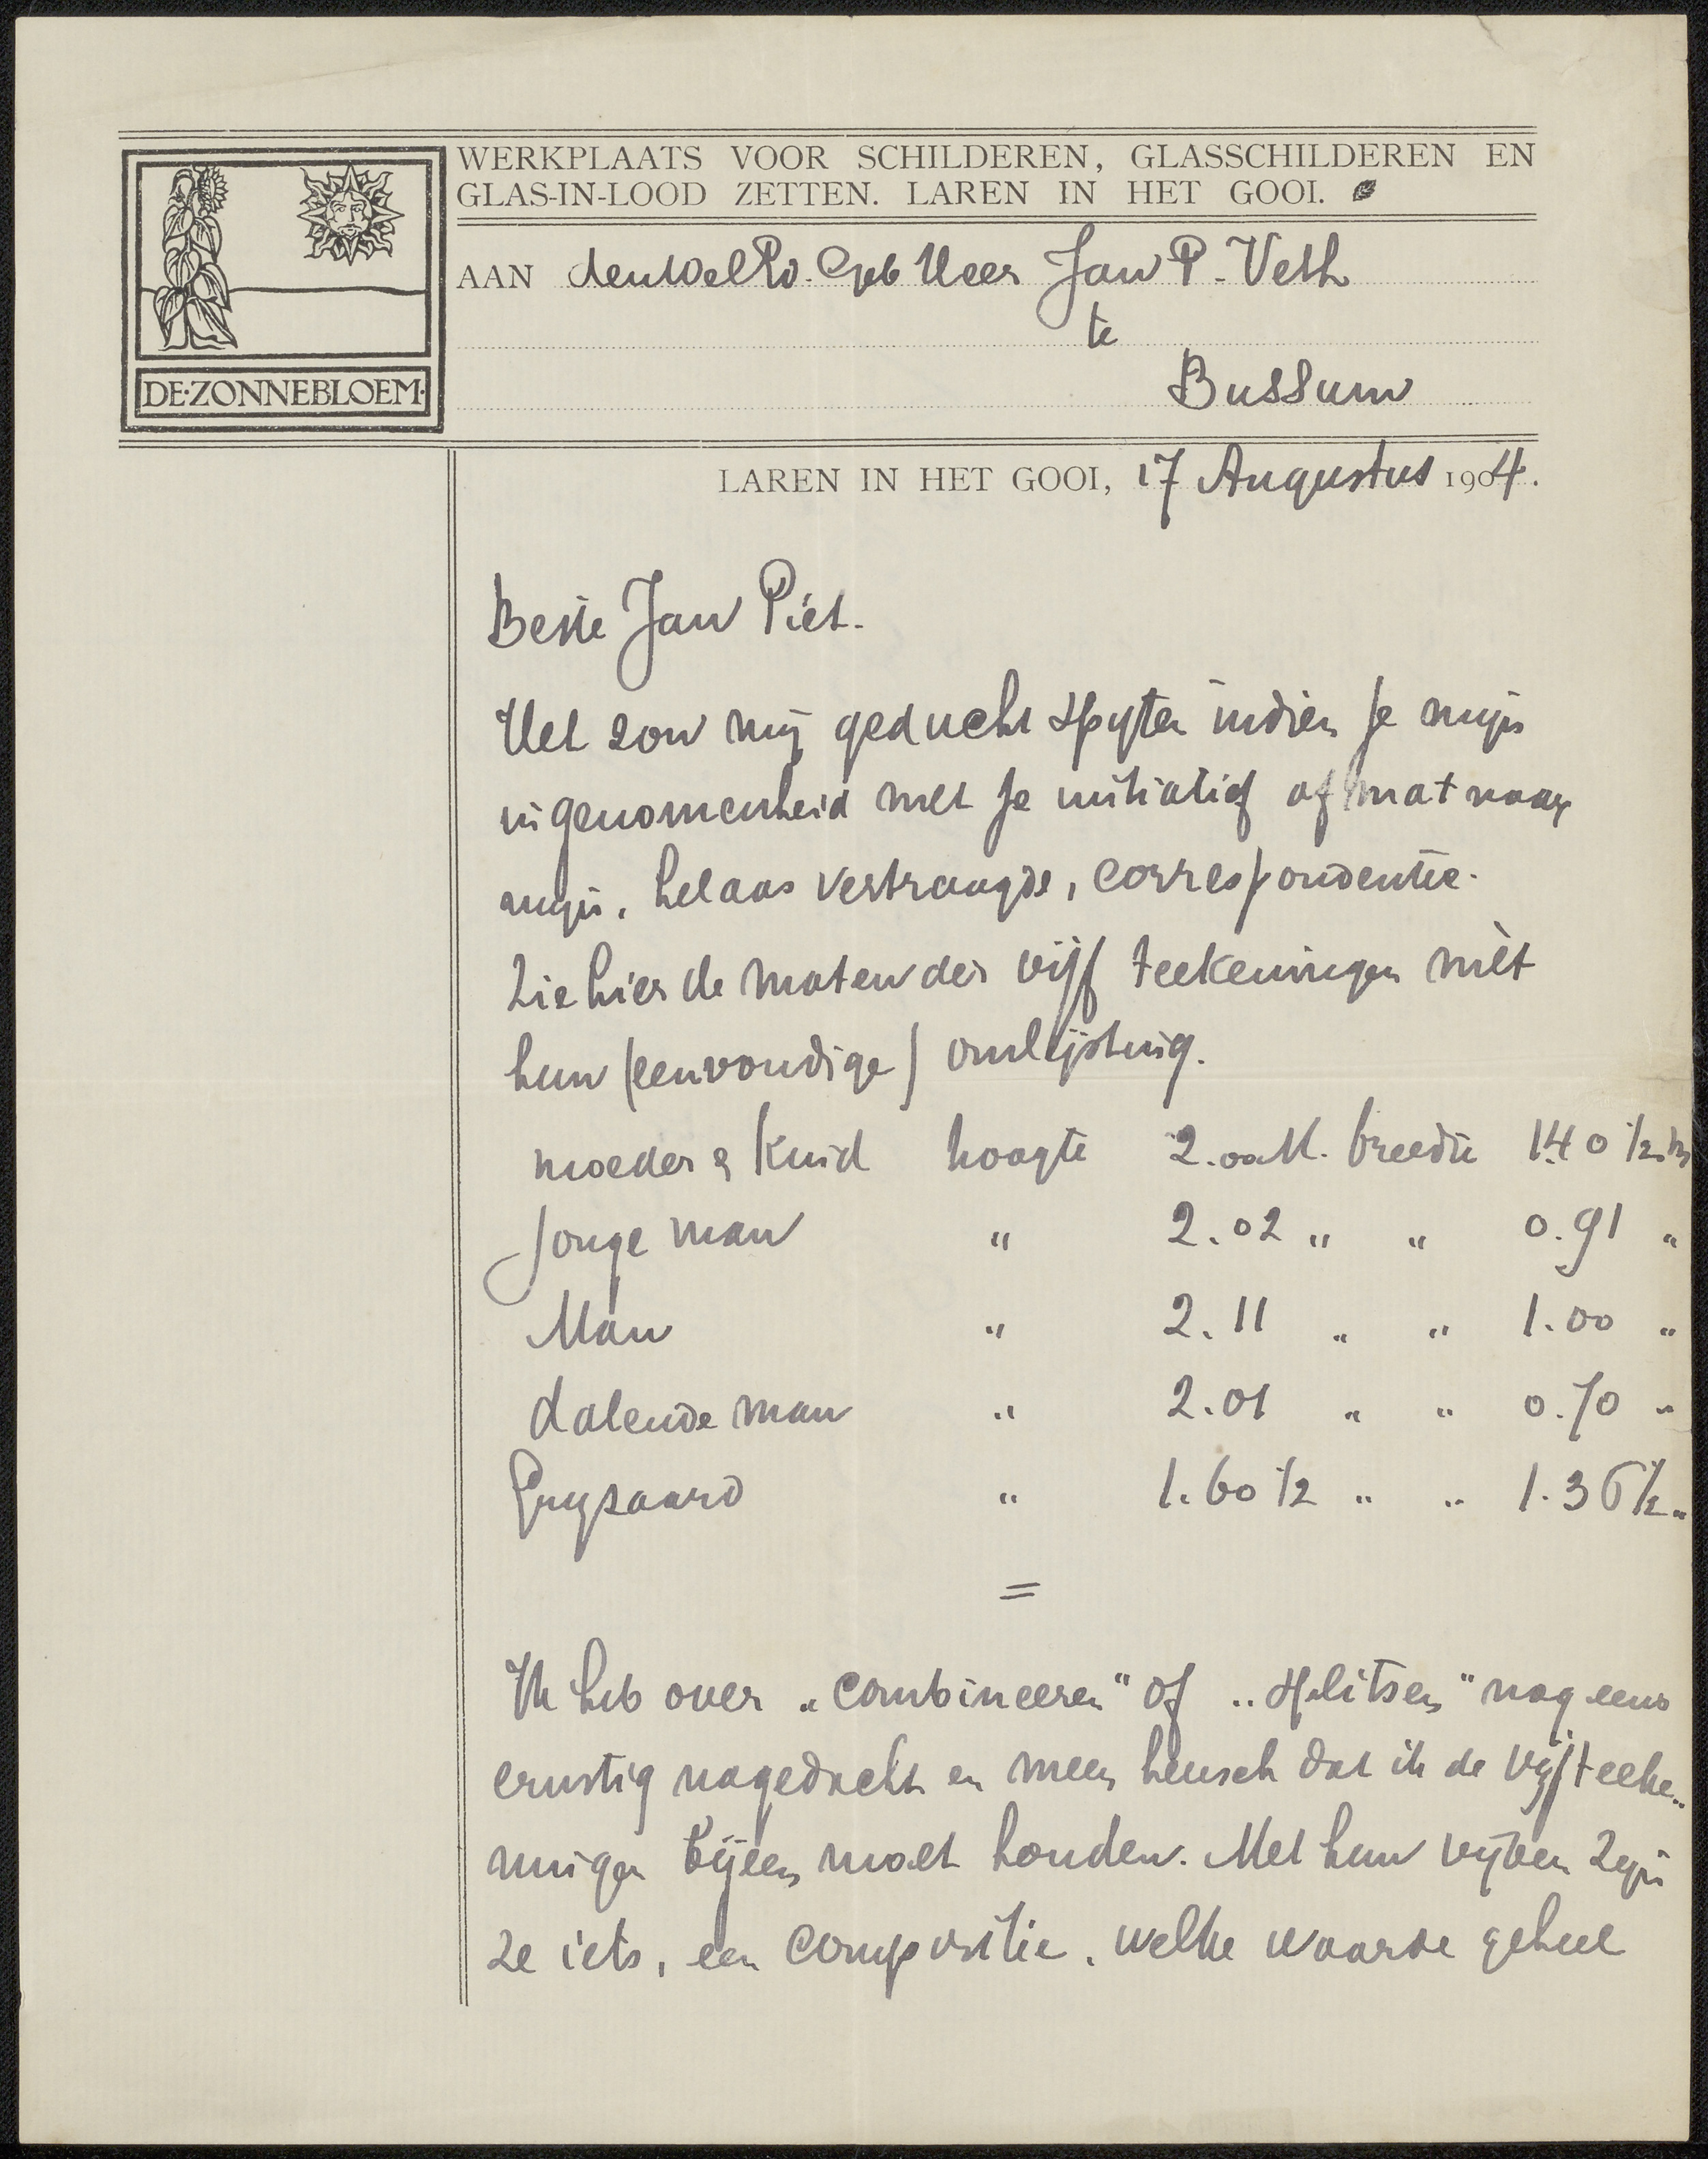 WERKPLAATS VOOR SCHILDEREN, GLASSCHILDEREN EN
GLAS-IN-LOOD ZETTEN. LAREN IN HET GOOI.
DE·ZONNEBLOEM·
AAN den WelEd. Geb Heer Jan P. Veth
te
Bussum
LAREN IN HET GOOI, 17 Augustus 1904.
Beste Jan Piet.
Het zou mij geducht spyten indien je mijn
ingenomenheid met je initiatief afmat naar
mijn, helaas vertraagde, correspondentie.
Zie hier de maten der vijf teekeningen mèt
hun (eenvoudige) omlijsting.
moeder & kind hoogte 2.00 M. breedte 1.40 1/2 M
Jonge man " 2.02 " " 0.91 "
Man " 2.11 " " 1.00 "
dalende man " 2.01 " " 0.70 "
Grysaard " 1.60 1/2 " " 1.36 1/2 "
=
Ik heb over „combineeren" of „splitsen" nog eens
ernstig nagedacht en meen heusch dat ik de vijf teeke„
ningen bijeen moet houden. Met hun vijven zijn
ze iets, een compositie, welke waarde geheel